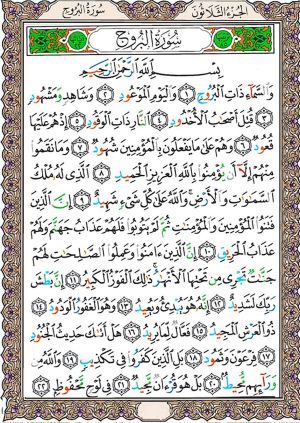 سُورَةُ البُرُوجِ الجُزْءُ الثَّلَاثُونَ
سُورَةُ البُرُوجِ
بِسْمِ اللَّهِ الرَّحْمَٰنِ الرَّحِيمِ
وَالسَّمَاءِ ذَاتِ الْبُرُوجِ ١ وَالْيَوْمِ الْمَوْعُودِ ٢ وَشَاهِدٍ وَمَشْهُودٍ
٣ قُتِلَ أَصْحَابُ الْأُخْدُودِ ٤ النَّارِ ذَاتِ الْوَقُودِ ٥ إِذْ هُمْ عَلَيْهَا
قُعُودٌ ٦ وَهُمْ عَلَىٰ مَا يَفْعَلُونَ بِالْمُؤْمِنِينَ شُهُودٌ ٧ وَمَا نَقَمُوا
مِنْهُمْ إِلَّا أَن يُؤْمِنُوا بِاللَّهِ الْعَزِيزِ الْحَمِيدِ ٨ الَّذِي لَهُ مُلْكُ
السَّمَاوَاتِ وَالْأَرْضِ وَاللَّهُ عَلَىٰ كُلِّ شَيْءٍ شَهِيدٌ ٩ إِنَّ الَّذِينَ
فَتَنُوا الْمُؤْمِنِينَ وَالْمُؤْمِنَاتِ ثُمَّ لَمْ يَتُوبُوا فَلَهُمْ عَذَابُ جَهَنَّمَ وَلَهُمْ
عَذَابُ الْحَرِيقِ ١٠ إِنَّ الَّذِينَ آمَنُوا وَعَمِلُوا الصَّالِحَاتِ لَهُمْ
جَنَّاتٌ تَجْرِي مِن تَحْتِهَا الْأَنْهَارُ ذَٰلِكَ الْفَوْزُ الْكَبِيرُ ١١ إِنَّ بَطْشَ
رَبِّكَ لَشَدِيدٌ ١٢ إِنَّهُ هُوَ يُبْدِئُ وَيُعِيدُ ١٣ وَهُوَ الْغَفُورُ الْوَدُودُ ١٤
ذُو الْعَرْشِ الْمَجِيدُ ١٥ فَعَّالٌ لِّمَا يُرِيدُ ١٦ هَلْ أَتَاكَ حَدِيثُ الْجُنُودِ
١٧ فِرْعَوْنَ وَثَمُودَ ١٨ بَلِ الَّذِينَ كَفَرُوا فِي تَكْذِيبٍ ١٩ وَاللَّهُ مِن
وَرَائِهِم مُّحِيطٌ ٢٠ بَلْ هُوَ قُرْآنٌ مَّجِيدٌ ٢١ فِي لَوْحٍ مَّحْفُوظٍ ٢٢